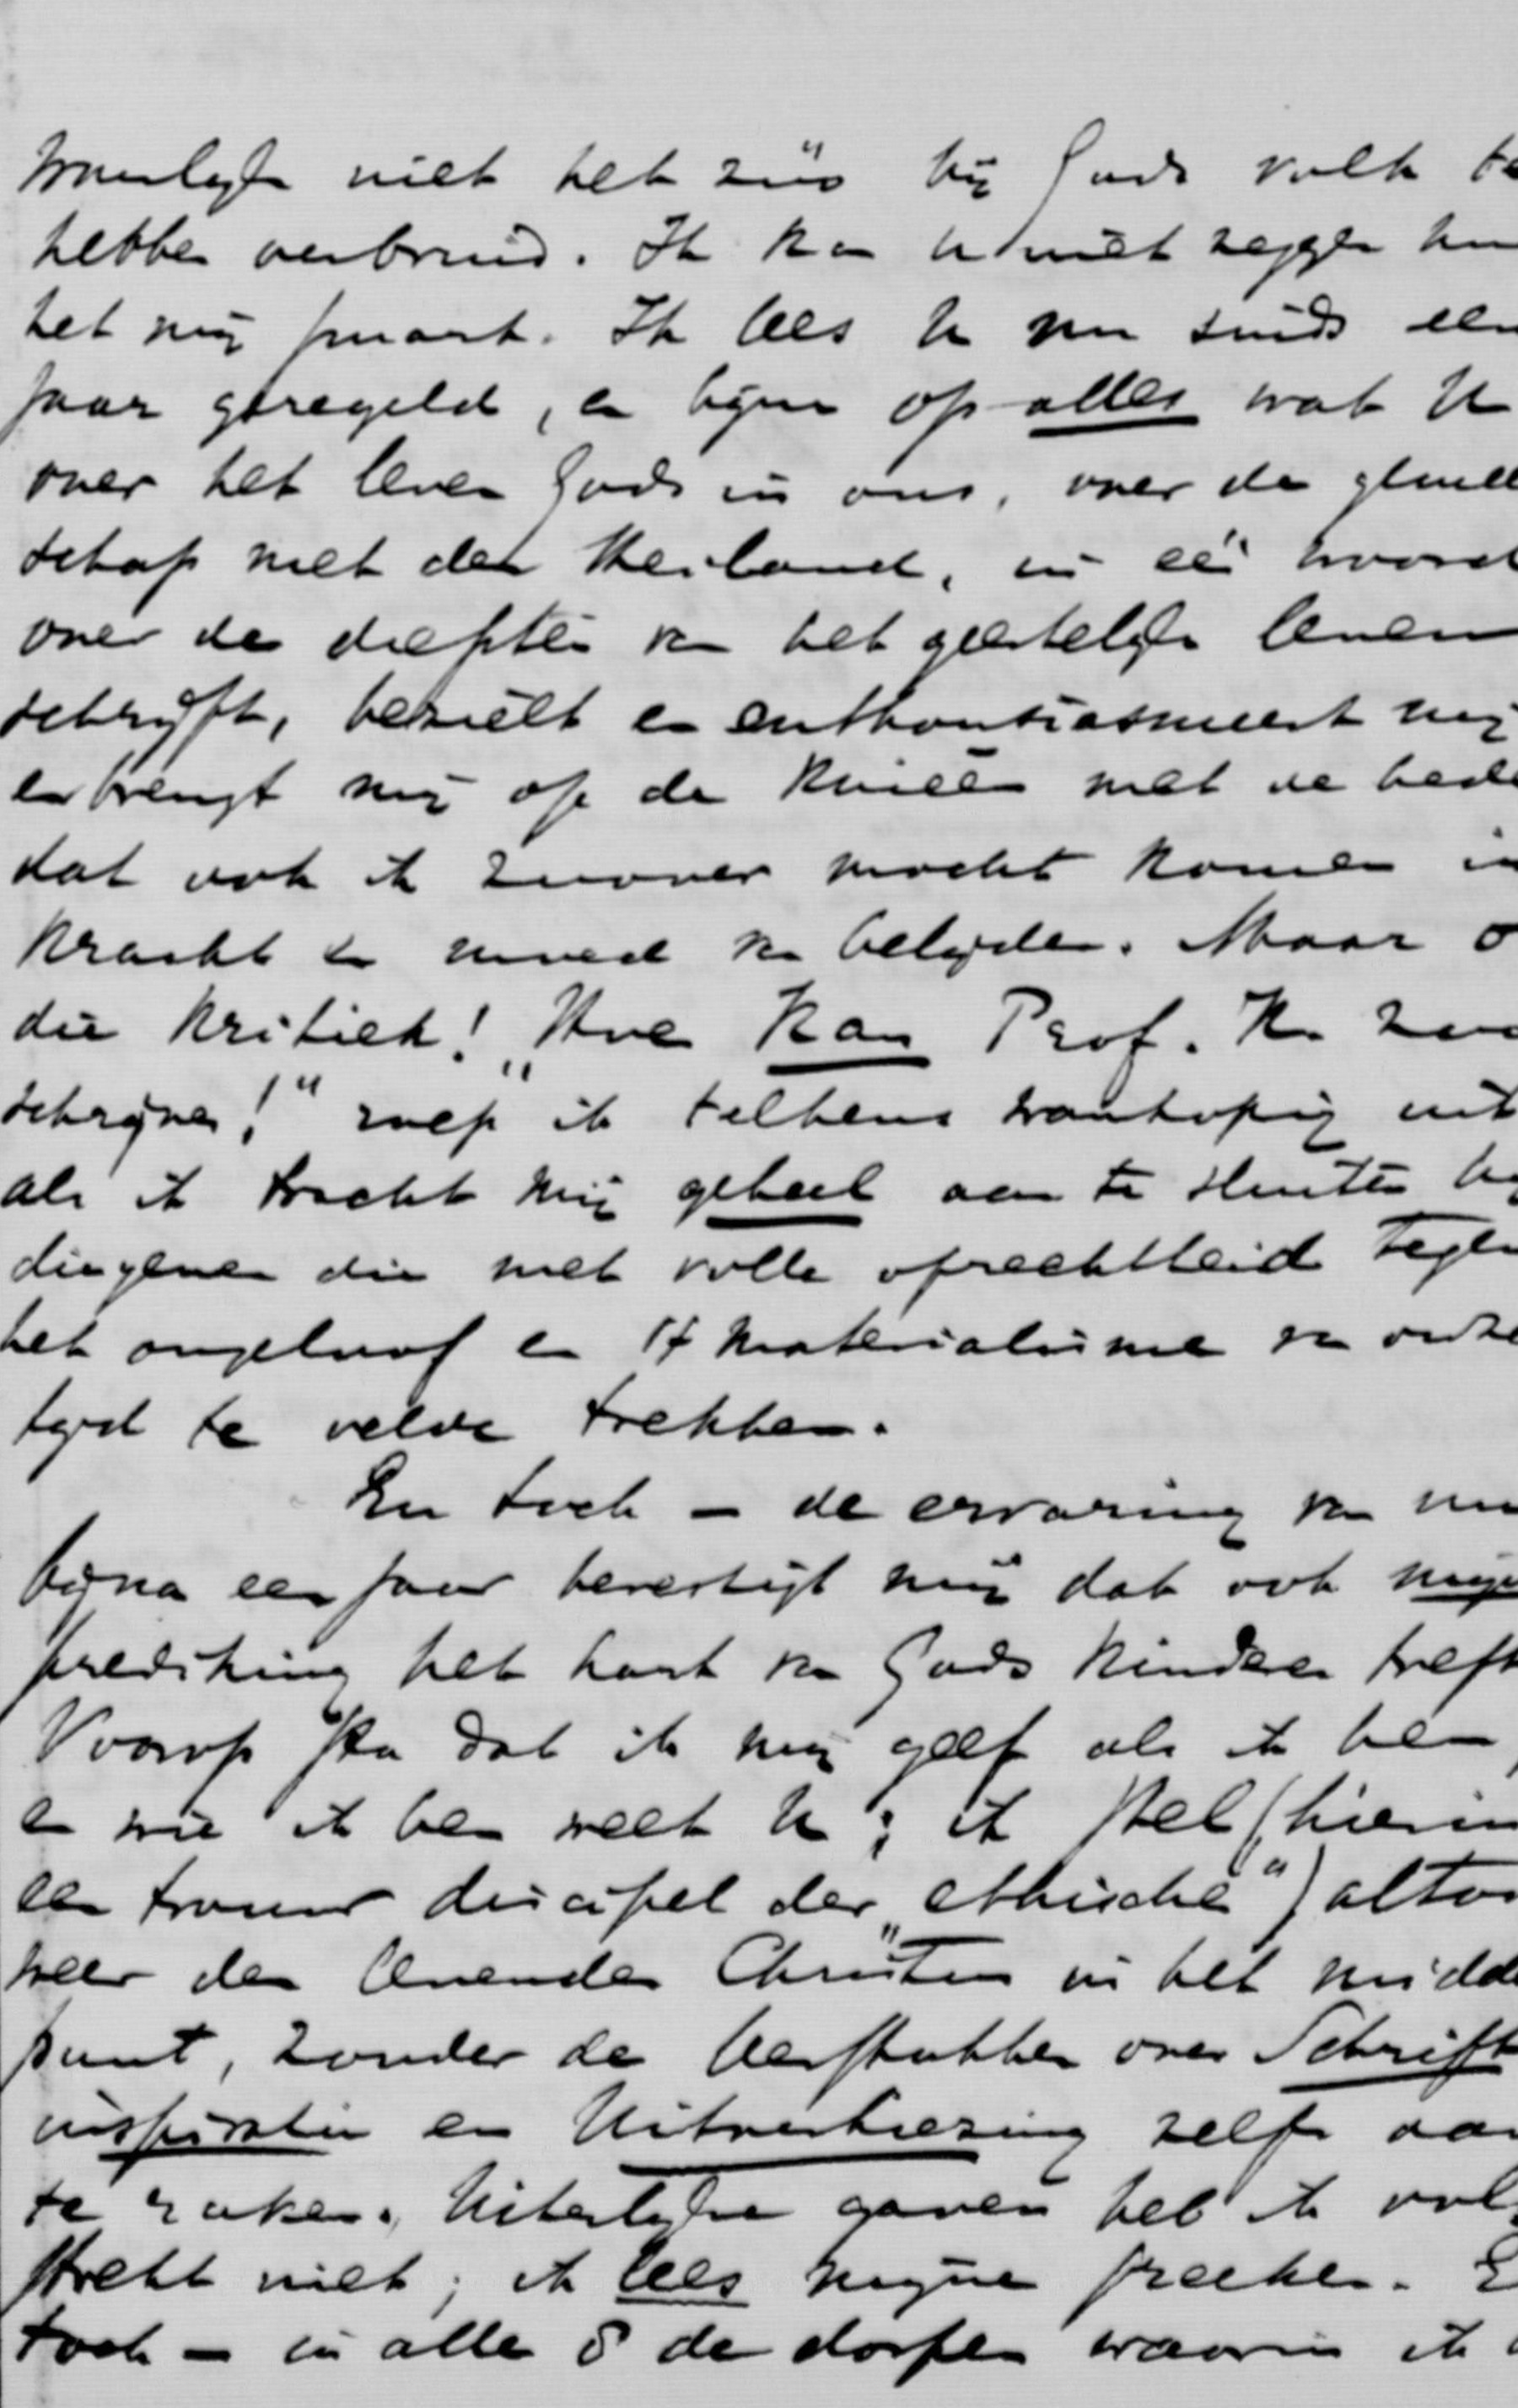 innerlijke niet het zijn bij Gods volk te
hebben verbruid. Ik kan U niet zeggen hoe
het mij smart. Ik lees U nu sinds een
jaar geregeld, en bijna op alles wat U
over het leven Gods in ons, over de gemeen
schap met den Heiland, in één woord
over de diepten v. het geestelijke leven
schrijft, bezielt en enthousiasmeert mij
en brengt mij op de knieën met de bede
dat ook ik zoover mocht komen in
kracht en moed v. belijden. Maar o
die kritiek! „Hoe kan Prof. K. zoo
schrijven!" roep ik telkens wanhopig uit
als ik tracht mij geheel aan te sluiten bij
diegenen die met volle oprechtheid tegen
het ongeloof en 't materialisme v. onze
tijd te velde trekken.
En toch – de ervaring v. nu
bijna een jaar bevestigt mij dat ook mijn
prediking het hart v. Gods kinderen treft
Voorop sta dat ik mij geef als ik ben,
en wie ik ben weet U; ik stel (hierin
een trouw discipel der „ethische") altoos
weer den levenden Christus in het midde
punt, zonder de leerstukken over Schrift
inspiratie en Uitverkiezing zelfs aan
te raken. Uiterlijke gaven heb ik vol
strekt niet; ik lees mijne preeken. E
toch – in alle 5 de dorpen waarin ik